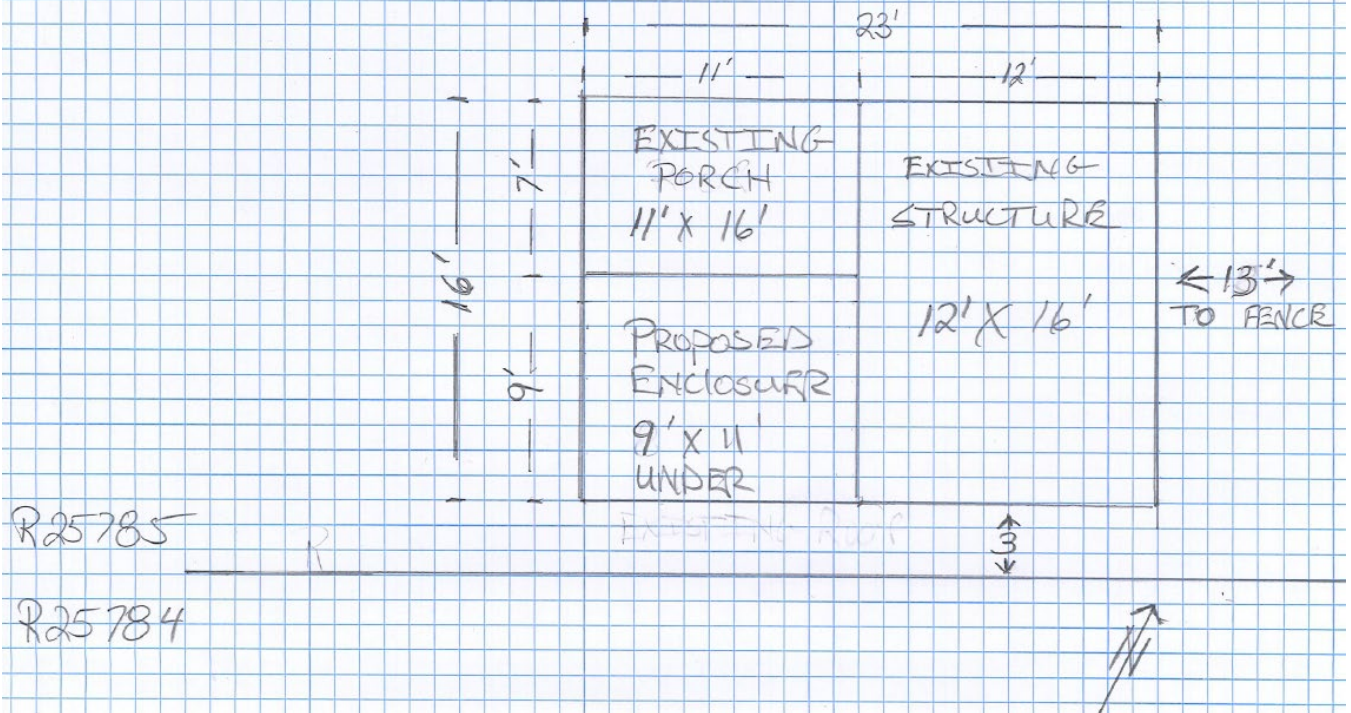 23'
11'
12'
7'
16'
9'
EXISTING
PORCH
11' X 16'
EXISTING
STRUCTURE
12' X 16'
PROPOSED
ENCLOSURE
9' X 11'
UNDER
EXISTING ROOF
13'
TO FENCE
3
R25785
R
R25784
N